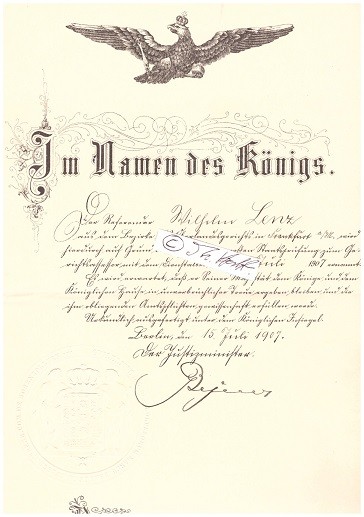 Im Namen des Königs.
Der Referendar Wilhelm Lenz
aus dem Bezirke Oberlandesgerichts in Frankfurt a/M. wird
hierdurch auf Grund Staatsprüfung zum Ge-
richtsassessor mit dem Dienstalter Juli 1907 ernannt.
Es wird erwartet, daß er Seiner Majestät dem Könige und dem
Königlichen Hause in unverbrüchlicher Treue ergeben bleiben und die
ihm obliegenden Amtspflichten gewissenhaft erfüllen werde.
Urkundlich ausgefertigt unter dem Königlichen Insiegel.
Berlin, den 15. Juli 1907.
Der Justizminister.